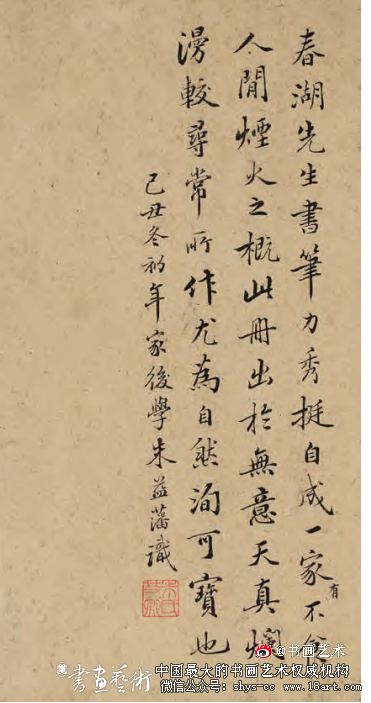 春湖先生書筆力秀挺自成一家有不食
人間煙火之概此冊出於無意天真爛
漫較尋常所作尤為自然洵可寶也
己丑冬初年家後學朱益藩識
@书画艺术
書画藝術
中国最大的书画艺术权威机构
微信公众号: shys-cc www.18art.com